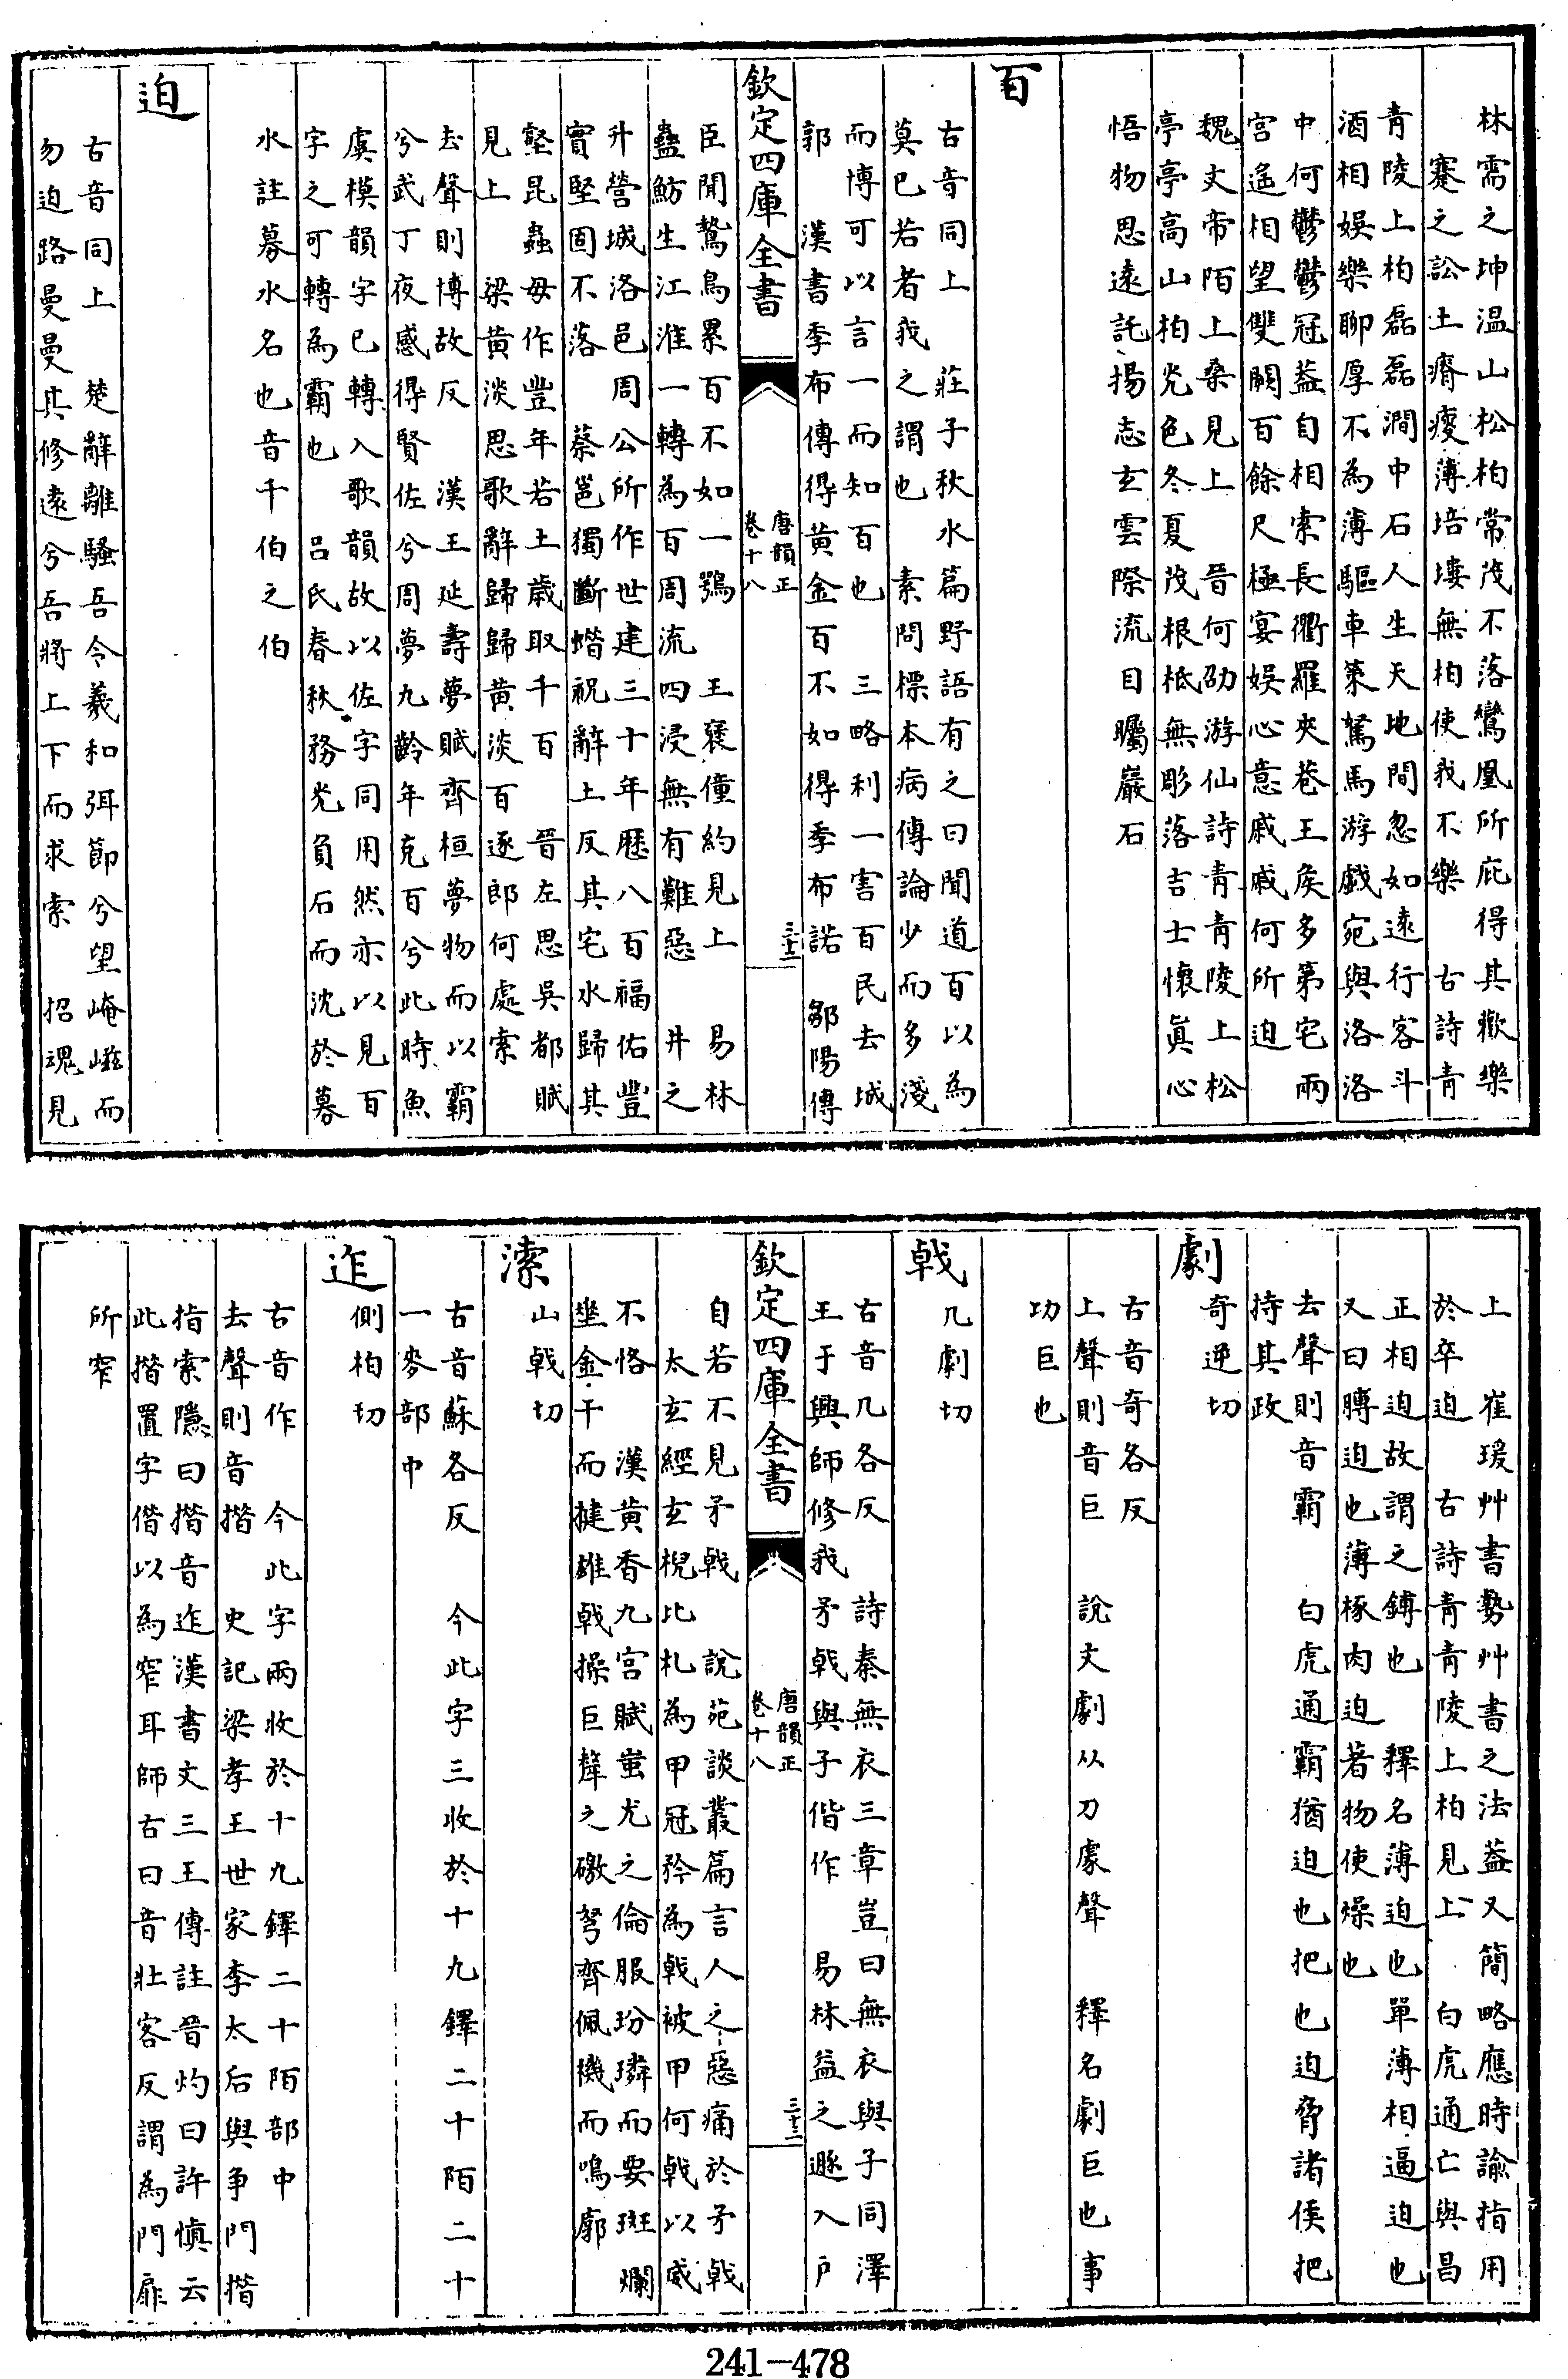 林需之坤温山松柏常茂不落鸞凰所庇得其歡樂
蹇之訟土瘠瘦薄培塿無柏使我不樂　古詩青
青陵上柏磊磊澗中石人生天地間忽如遠行客斗
酒相娯樂聊厚不為薄驅車策駑馬游戲宛與洛洛
中何鬱鬱冠葢自相索長衢羅夾巷王侯多第宅兩
宫遙相望雙闕百餘尺極宴娯心意戚戚何所迫
魏文帝陌上桑見上　晉何劭游仙詩青青陵上松
亭亭高山柏光色冬夏茂根柢無彫落吉士懷眞心
悟物思遠託揚志玄雲際流目矚巖石
百
古音同上　莊子秋水篇野語有之曰聞道百以為
莫已若者我之謂也　素問標本病傳論少而多淺
而博可以言一而知百也　三略利一害百民去城
郭　漢書季布傳得黄金百不如得季布諾　鄒陽傳
欽定四庫全書
唐韻正
卷十八
三十二
臣聞鷙鳥累百不如一鶚　王褒僮約見上　易林
蠱魴生江淮一轉為百周流四浸無有難惡　井之
升營城洛邑周公所作世建三十年歴八百福佑豐
實堅固不落　蔡邕獨斷蜡祝辭土反其宅水歸其
壑昆蟲毋作豐年若土歲取千百　晉左思吳都賦
見上　梁黄淡思歌辭歸歸黄淡百逐郎何處索
去聲則博故反　漢王延壽夢賦齊桓夢物而以霸
兮武丁夜感得賢佐兮周夢九齡年克百兮此時魚
虞模韻字已轉入歌韻故以佐字同用然亦以見百
字之可轉為霸也　吕氏春秋務光負石而沈於募
水註募水名也音千伯之伯
迫
古音同上　楚辭離騷吾令羲和弭節兮望崦嵫而
勿迫路曼曼其修遠兮吾將上下而求索　招魂見
上　崔瑗艸書勢艸書之法葢又簡略應時諭指用
於卒迫　古詩青青陵上柏見上　白虎通亡與昌
正相迫故謂之鎛也　釋名薄迫也單薄相逼迫也
又曰膊迫也薄椓肉迫著物使燥也
去聲則音霸　白虎通霸猶迫也把也迫脅諸侯把
持其政
劇
奇逆切
古音奇各反
上聲則音巨　說文劇从刀豦聲　釋名劇巨也事
功巨也
戟
几劇切
古音几各反　詩秦無衣三章豈曰無衣與子同澤
王于興師修我矛戟與子偕作　易林益之遯入戶
欽定四庫全書
唐韻正
卷十八
三十三
自若不見矛戟　說苑談叢篇言人之惡痛於矛戟
太玄經玄棿比札為甲冠矜為戟被甲何戟以威
不恪　漢黄香九宫賦蚩尤之倫服玢璘而要斑斕
坐金干而揵雄戟操巨斧之礉弩齊佩機而鳴廓
山戟切
溹
古音蘇各反　今此字三收於十九鐸二十陌二十
一麥部中
迮
側柏切
古音作　今此字兩收於十九鐸二十陌部中
去聲則音措　史記梁孝王世家李太后與争門措
指索隱曰措音迮漢書文三王傳註晉灼曰許愼云
此措置字偕以為窄耳師古曰音壯客反謂為門扉
所窄
241-478